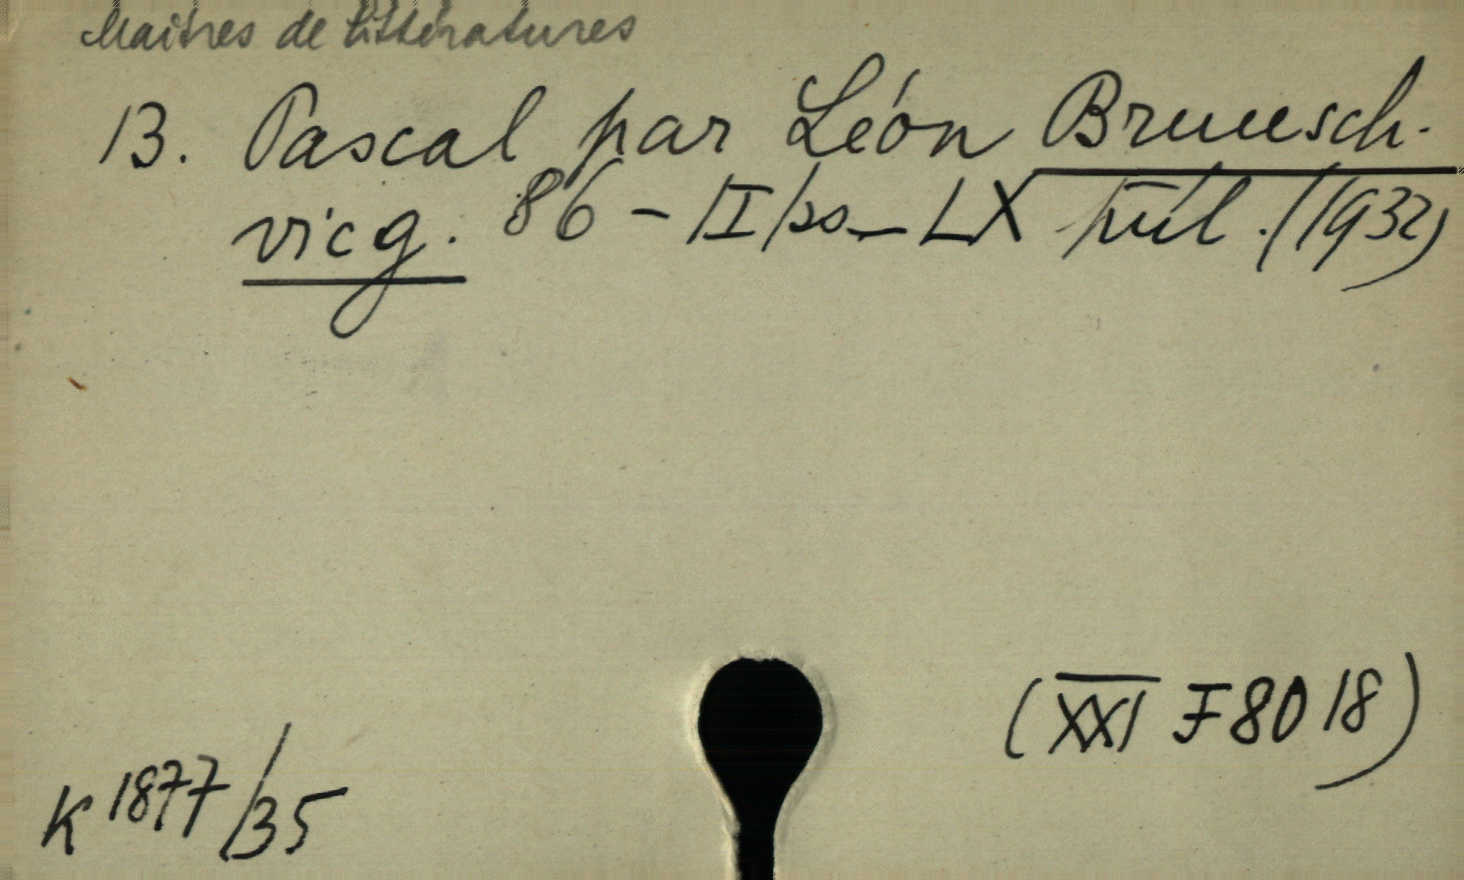 Maitres de littératures
13. Pascal par Léon Brunsch-
vicg. 86 - II ss - LX (1932)
(XXI F 80 18)
K 1877/35